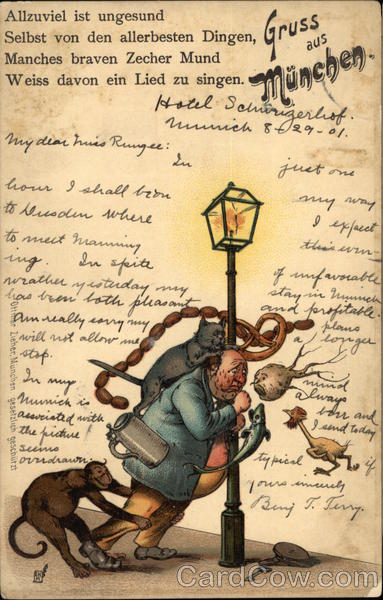 Allzuviel ist ungesund
Selbst von den allerbesten Dingen,
Manches braven Zecher Mund
Weiss davon ein Lied zu singen.
Gruss
aus
München.
Hotel Schweizerhof.
Munich 8-29-01.
My dear Miss Rungee:
In just one
hour I shall be on my way
to Dresden where I expect
to meet Manning this even-
ing. In spite of unfavorable
weather yesterday my stay in Munich
has been both pleasant and profitable.
Am really sorry my plans
will not allow me a longer
stop.
In my mind
Munich is always
associated with beer and
the picture I send today
seems typical if
overdrawn.
yours sincerely
Benj T. Terry.
Ottmar Zieher, München gesetzlich geschützt
CardCow.com